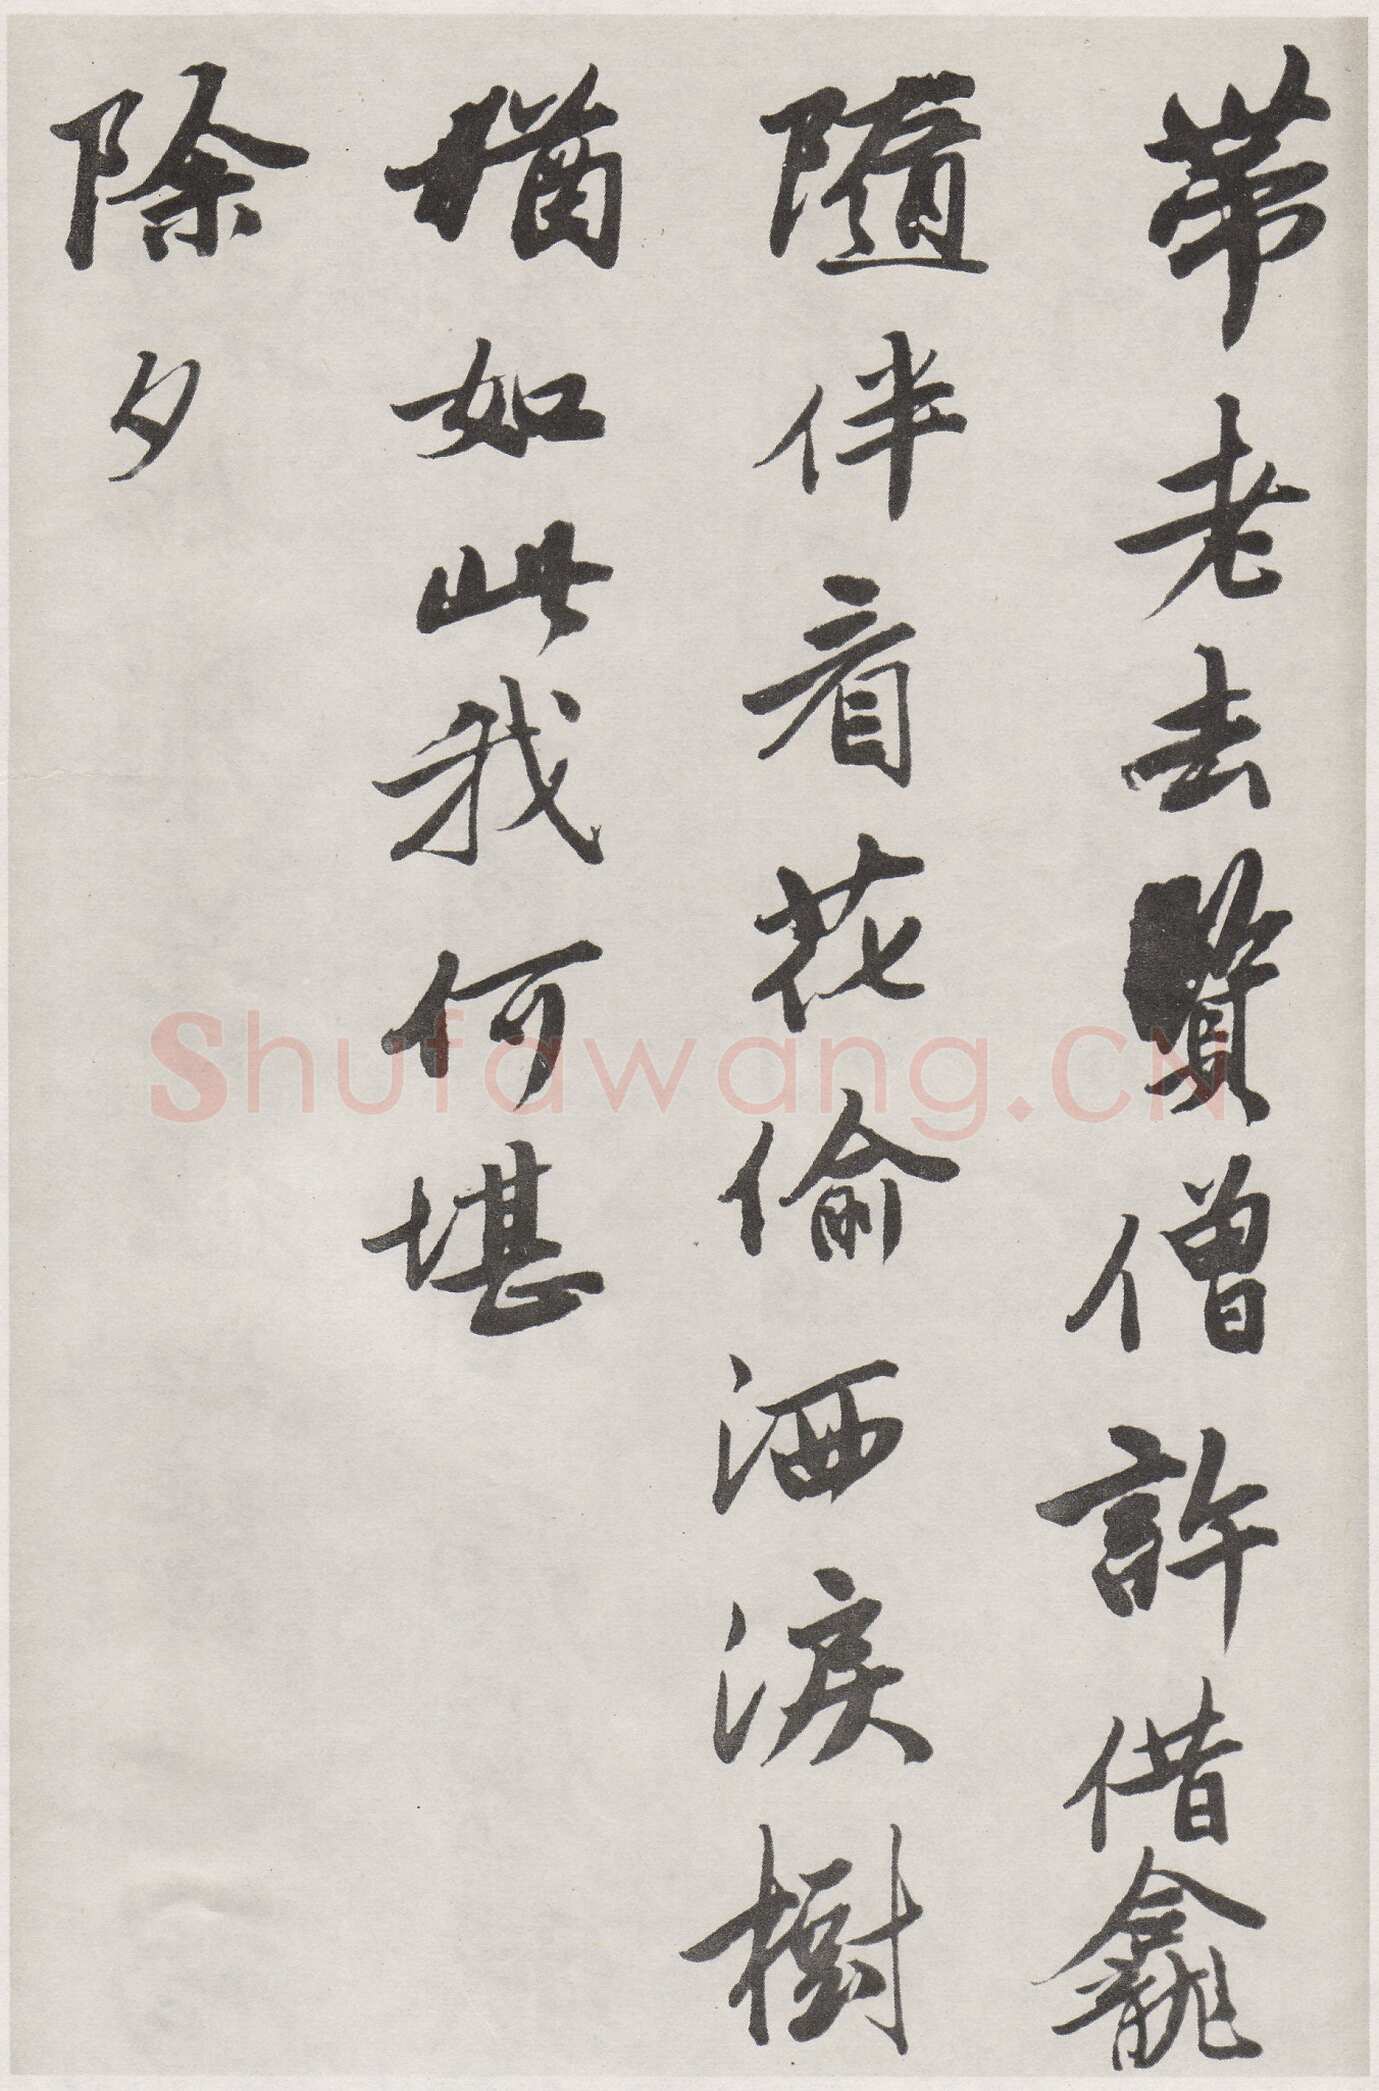 带老去賢僧許借龕
隨伴看花偷洒淚樹
猶如此我何堪
除夕
Shufawang.CN